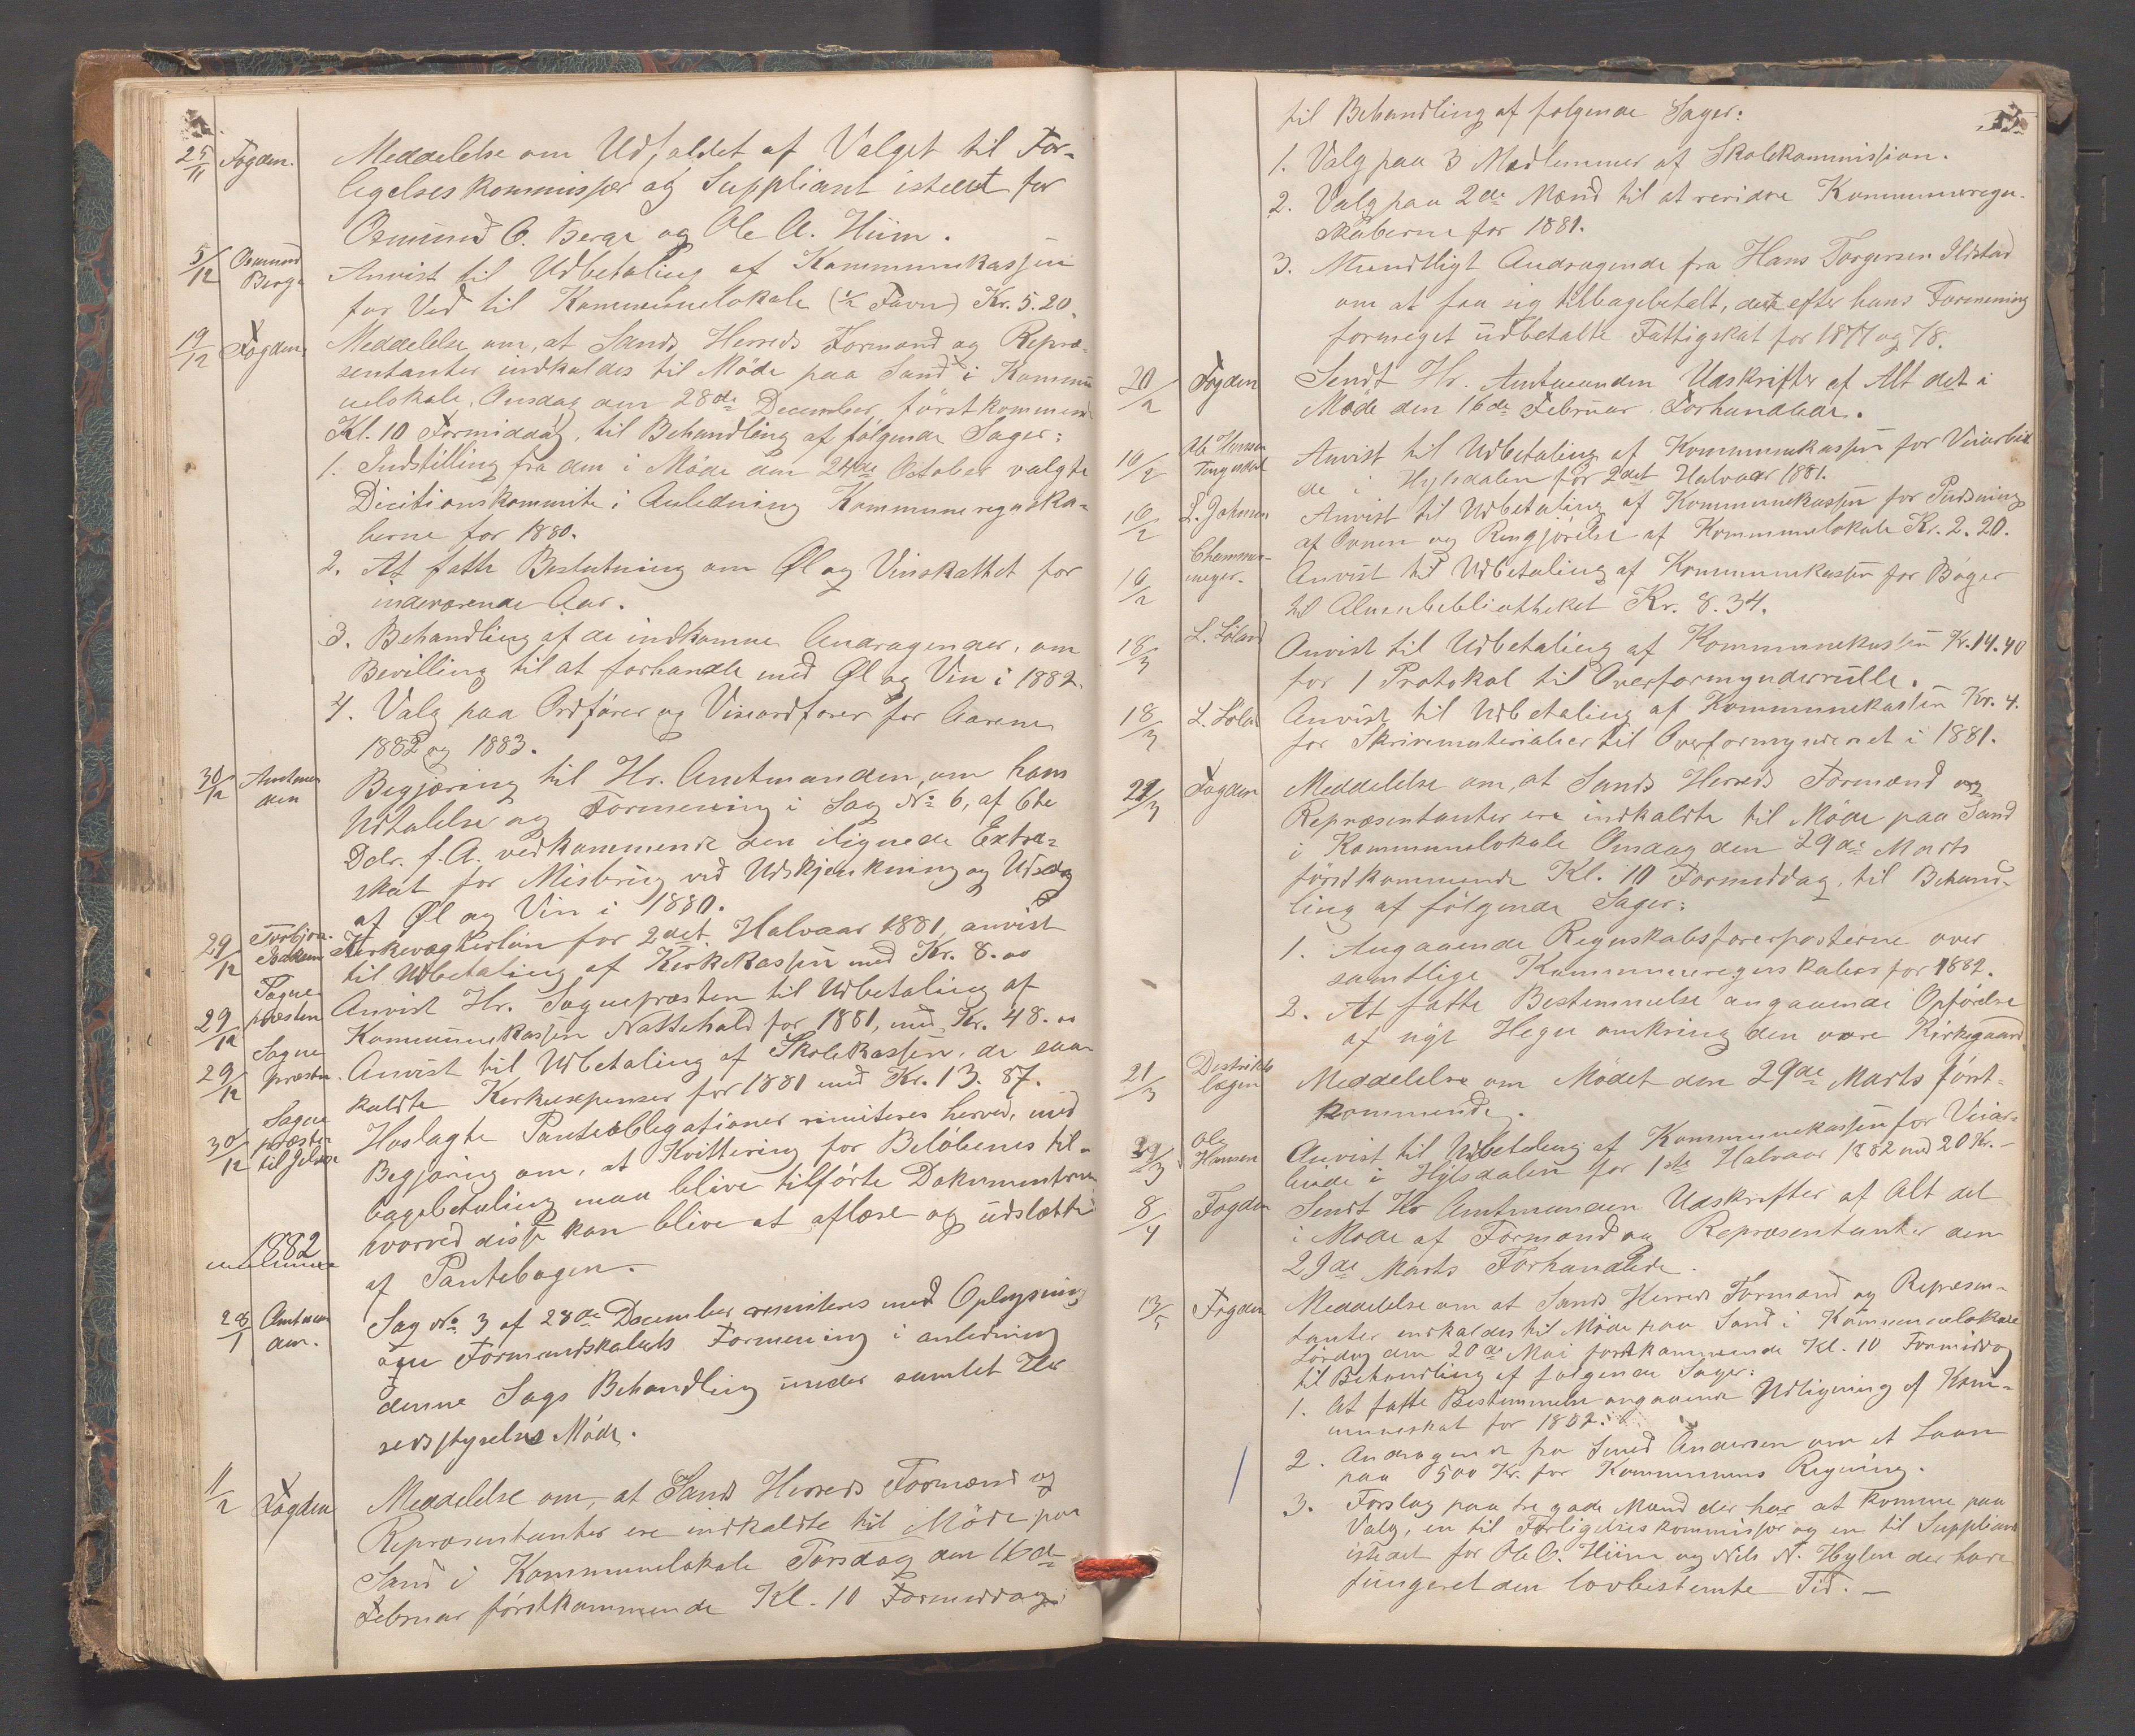 25/11 Fogden. Meddelelse om Udfaldet af Valget til For-
ligelseskommissær og Suppliant istedet for
Osmund O. Berge og Ole A. Hiim.
5/12 Osmund Berge Anvist til Udbetaling af Kommunekassen
for Ved til Kommunelokale (½ Favn) Kr. 5.20.
19/12 Fogden Meddelelse om, at Sands Herreds Formænd og Repræ-
sentanter indkaldes til Møde paa Sand i Kommu-
nelokale, Onsdag den 28de December førstkommende
Kl. 10 Formiddag, til Behandling af følgende Sager:
1. Indstilling fra den i Møde den 24de October valgte
Dicitionskommite i Anledning Kommuneregnska-
berne for 1880.
2. At fatte Beslutning om Øl og Vinskattet for
indeværende Aar.
3. Behandling af de indkomne Andragender, om
Bevilling til at forhandle med Øl og Vin i 1882.
4. Valg paa Ordfører og Viseordfører for Aarene
1882 og 1883.
30/12 Amtman den Begjæring til Hr. Amtmanden, om hans
Udtalelse og Formening i Sag No 6, af 6te
Dds. f. A. vedkommende den ilignede Extra-
skat for Misbrug ved Udskjenkning og Udsalg
af Øl og Vin i 1880.
29/12 Torbjørn Isaksen Kirkevægterløn for 2det Halvaar 1881, anvist
til Udbetaling af Kirkekassen med Kr. 8.00
29/12 Sogne præsten Anvist Hr. Sognepræsten til Udbetaling af
Kommunekassen Nattehold for 1881, med Kr. 48.00
29/12 Sogne præsten. Anvist til Udbetaling af Skolekassen, de saa-
kaldte Kirkeexpenser for 1881 med Kr. 13.87.
30/12 Sogne præsten til Jelse Hoslagte Panteobligationer remiteres herved, med
Begjæring om, at Kvittering for Beløbenes til-
bagebetaling maa blive tilførte Dokumenterne
hvorved disse kan blive at aflæse og udslætte
af Pantebogen.
1882
28/1 Amtman den. Sag No 3 af 28de December remiteres med Oplysning
om Formandskabets Formening i anledning
denne Sags Behandling under samlet Her-
redsstyrelses Møde.
11/2 Fogden Meddelelse om, at Sands Herreds Formænd og
Repræsentanter ere indkaldte til Møde paa
Sand i Kommunelokale Torsdag den 16de
Februar førstkommende Kl. 10 Formiddag
til Behandling af følgende Sager:
1. Valg paa 3 Medlemmer af Skolekommission.
2. Valg paa 2de Mænd til at revidere Kommuneregn-
skaberne for 1881.
3. Mundtligt Andragende fra Hans Torgersen Ilstad
om at faa sig tilbagebetalt, det efter hans Formening
formeget udbetalte Fattigskat for 1877 og 78.
20/2 Fogden Sendt Hr. Amtmanden Udskrifter af Alt det i
Møde den 16de Februar Forhandlede.
16/2 Ole Hansen Anvist til Udbetaling af Kommunekassen for Veiarbei
de i Hylsdalen for 2det Halvaar 1881.
16/2 L. Johnsen Anvist til Udbetaling af Kommunekassen for Pudsning
af Ovnen og Rengjørelse af Kommunelokale Kr. 2.20.
16/2 Chammermeyer. Anvist til Udbetaling af Kommunekassen for Bøger
til Almuebibliotheket Kr. 8.34.
18/3 L. Løland Anvist til Udbetaling af Kommunekassen Kr. 14.40
for 1 Protokol til Overformynderrulle.
18/3 L. Løland Anvist til Udbetaling af Kommunekassen Kr. 4.
for Skrivematerialier til Overformynderiet i 1881.
21/3 Fogden. Meddelelse om, at Sands Herreds Formænd og
Repræsentanter ere indkaldte til Møde paa Sand
i Kommunelokale Onsdag den 29de Marts
førstkommende Kl. 10 Formiddag, til Behand-
ling af følgende Sager:
1. Angaaende Regnskabsførerposterne over
samtlige Kommuneregnskaber for 1882.
2. At fatte Bestemmelse angaaende Opførelse
af nyt Hegn omkring den øvre Kirkegaard.
21/3 Destrikts lægen Meddelelse om Mødet den 29de Marts først-
kommende.
29/3 Ole Hansen Anvist til Udbetaling af Kommunekassen for Veiar-
beide i Hylsdalen for 1ste Halvaar 1882 med 20 Kr. -
8/4 Fogden Sendt Hr Amtmanden Udskrifter af Alt det
i Møde af Formænd og Repræsentanter den
29de Marts Forhandlede.
13/5 Fogden Meddelelse om at Sands Herreds Formænd og Repræsen-
tanter indkaldes til Møde paa Sand i Kommunelokale
Lørdag den 20de Mai førstkommende Kl. 10 Formiddag
til Behandling af følgende Sager:
1. At fatte Bestemmelse angaaende Udligning af Kom-
muneskat for 1882.
2. Andragende fra Smed Andersen om et Laan
paa 500 Kr. for Kommunens Regning.
3. Forslag paa tre gode Mænd der har at komme paa
Valg, en til Forligelseskommissær og en til Suppliant
istedet for Ole A. Hiim og Nils N. Hylen der have
fungeret den lovbestemte Tid. -